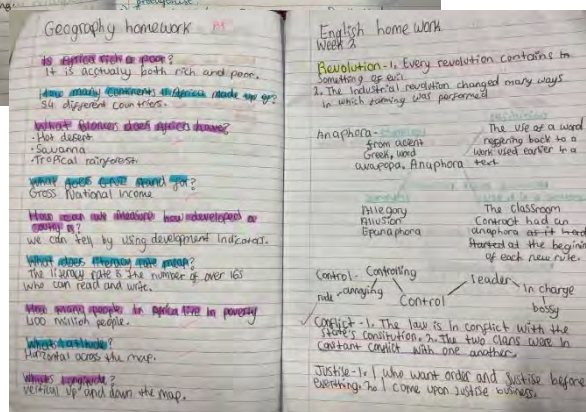 Geography homework
Is Africa rich or poor?
It is acctualy both rich and poor.
How many continents is Africa made up of?
54 different countries.
What biomes does Africa have?
• Hot desert
• Savanna
• Tropical rainforest
What does GNI stand for?
Gross National Income
How can we measure how developed a
we can tell by using development indicators.
What does literacy rate mean?
The literacy rate is the number of over 16s
who can read and write.
How many people in Africa live in poverty
400 million people.
What's latitude?
Horizontal across the map.
What's longitude?
vertical up and down the map.
English home work
Week 2
Revolution - 1. Every revolution contains in
Something of evil.
2. The Industrial revolution changed many ways
in which farming was performed
Anaphora -
from
Greek word
Anaphora
The use of a word
referring back to a
word used earlier in a
text
Allegory
Allusion
Epanaphora
The classroom
Contract had an
anaphora as it had
started at the begining
of each new rule.
Control - Controlling
rude - annoying
Control
leader - in charge
bossy
Conflict - 1. The law is in conflict with the
State's consitution. 2. The two clans were in
Constant conflict with one another.
Justise - 1. I who want order and justise before
everything. 2. I come upon justise business.